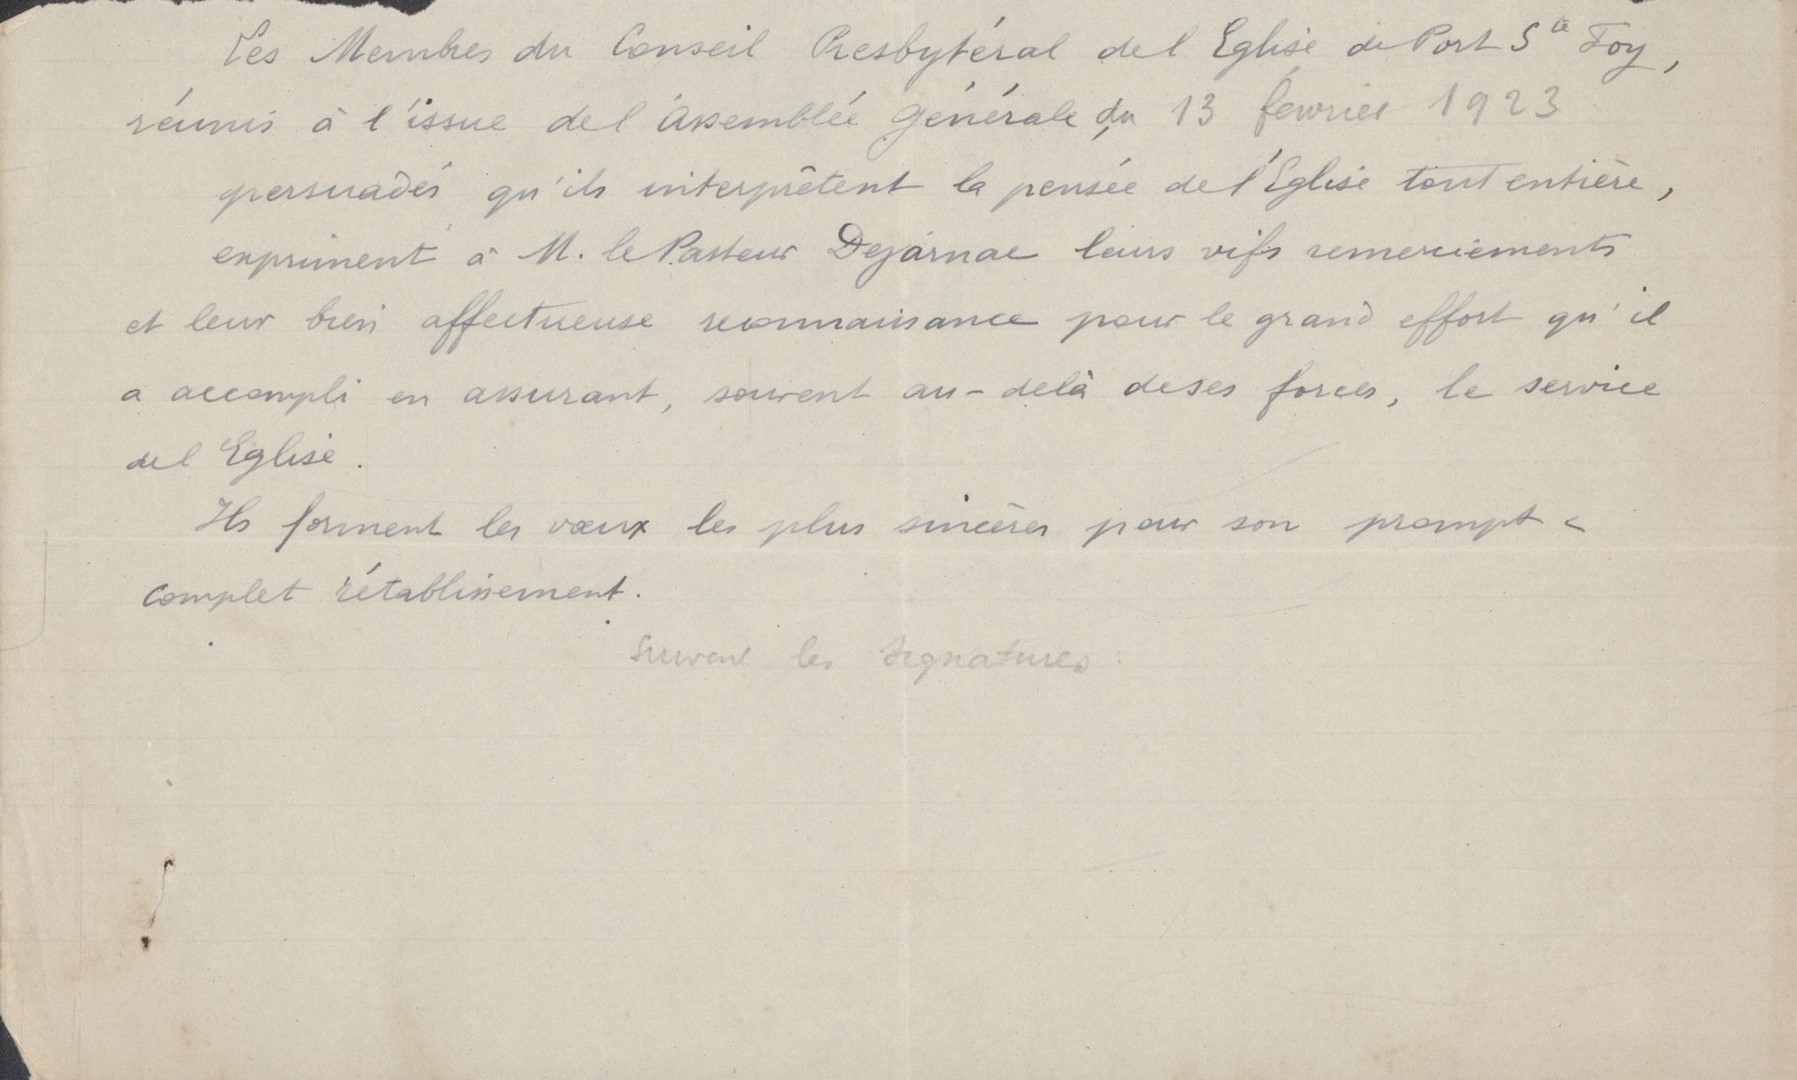 Les Membres du Conseil Presbytéral de l'Eglise de Port Ste Foy,
réunis à l'issue de l'Assemblée Générale du 13 février 1923
persuadés qu'ils interprêtent la pensée de l'Eglise tout entière,
expriment à M. le Pasteur Dejarnac leurs vifs remerciements
et leur bien affectueuse reconnaissance pour le grand effort qu'il
a accompli en assurant, souvent au-delà de ses forces, le service
de l'Eglise.
Ils forment les vœux les plus sincères pour son prompt &
complet rétablissement.
Suivent les signatures